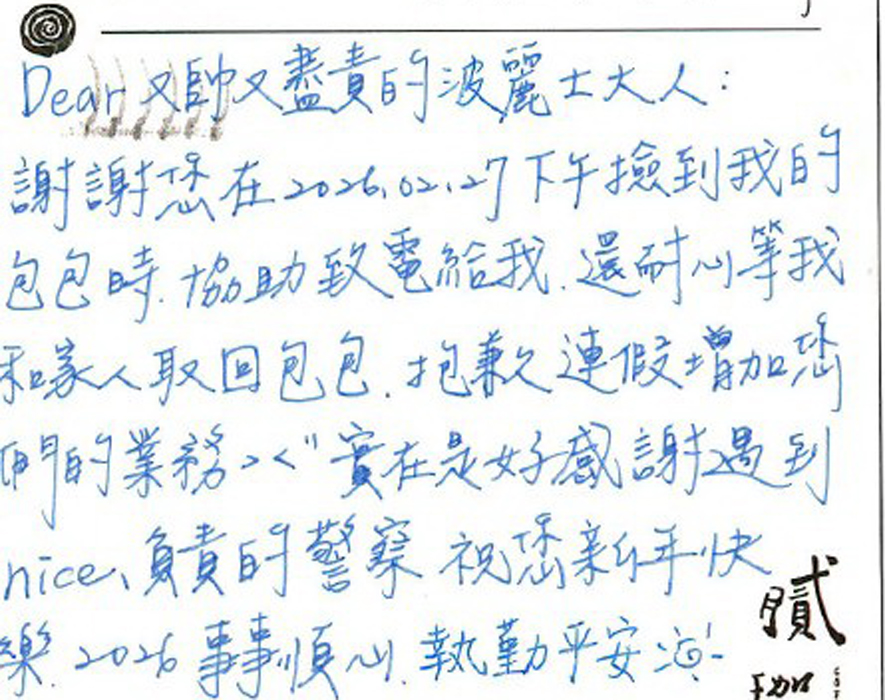 Dear 又帥又盡責的波麗士大人:
謝謝您在2026.02.27下午撿到我的
包包時.協助致電給我.還耐心等我
和家人取回包包.抱歉連假增加您
們的業務><"實在是好感謝遇到
nice、負責的警察 祝您新年快
樂.2026事事順心.執勤平安